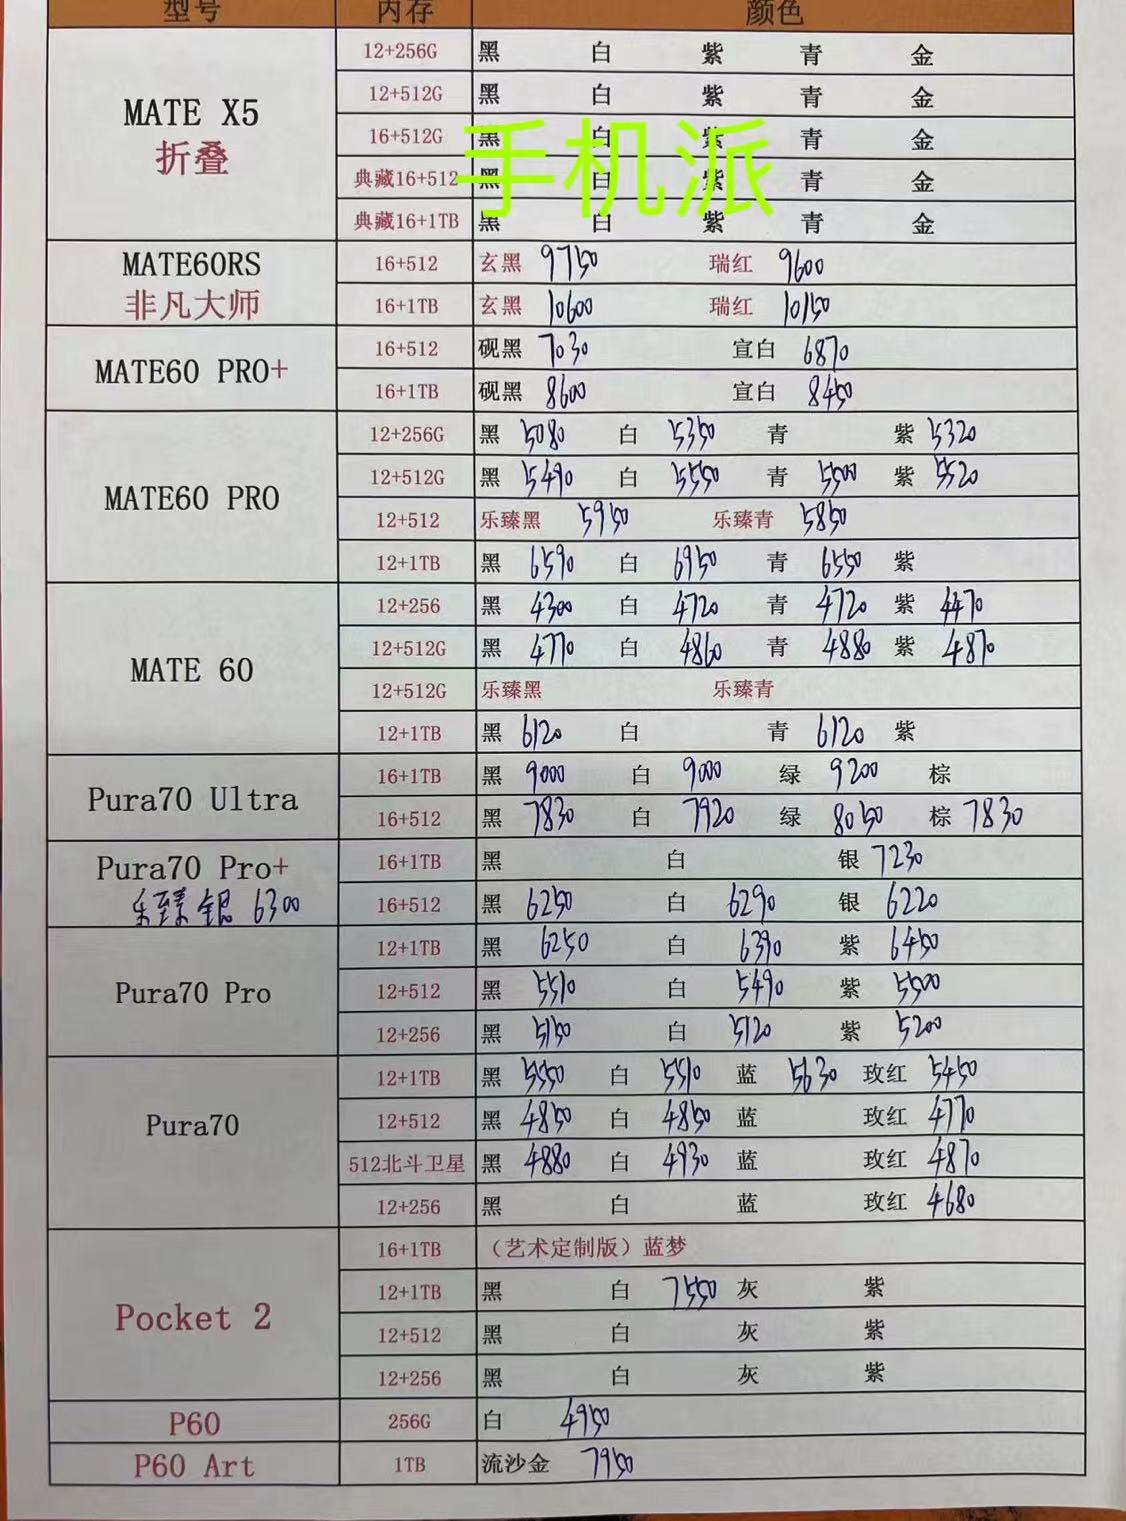 型号 内存 颜色
MATE X5
折叠
12+256G 黑 白 紫 青 金
12+512G 黑 白 紫 青 金
16+512G 黑 白 紫 青 金
典藏16+512 黑 白 紫 青 金
典藏16+1TB 黑 白 紫 青 金
手机派
MATE60RS
非凡大师
16+512 玄黑 9750 瑞红 9600
16+1TB 玄黑 10600 瑞红 10150
MATE60 PRO+
16+512 砚黑 7030 宣白 6870
16+1TB 砚黑 8600 宣白 8450
MATE60 PRO
12+256G 黑 5080 白 5350 青 紫 5320
12+512G 黑 5490 白 5550 青 5500 紫 5520
12+512 乐臻黑 5950 乐臻青 5850
12+1TB 黑 6590 白 6950 青 6550 紫
MATE 60
12+256 黑 4300 白 4720 青 4720 紫 4470
12+512G 黑 4770 白 4860 青 4880 紫 4870
12+512G 乐臻黑 乐臻青
12+1TB 黑 6120 白 青 6120 紫
Pura70 Ultra
16+1TB 黑 9000 白 9000 绿 9200 棕
16+512 黑 7830 白 7920 绿 8050 棕 7830
Pura70 Pro+
乐臻银 6300
16+1TB 黑 白 银 7230
16+512 黑 6250 白 6290 银 6220
Pura70 Pro
12+1TB 黑 6250 白 6390 紫 6450
12+512 黑 5510 白 5490 紫 5500
12+256 黑 5150 白 5120 紫 5200
Pura70
12+1TB 黑 5550 白 5510 蓝 5630 玫红 5450
12+512 黑 4850 白 4850 蓝 玫红 4770
512北斗卫星 黑 4880 白 4930 蓝 玫红 4870
12+256 黑 白 蓝 玫红 4680
Pocket 2
16+1TB （艺术定制版）蓝梦
12+1TB 黑 白 7550 灰 紫
12+512 黑 白 灰 紫
12+256 黑 白 灰 紫
P60 256G 白 4950
P60 Art 1TB 流沙金 7950